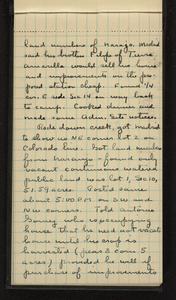 land numbers of Naranjo. Madrid
said his brother Felipe of Tierra
Amarilla would sell his house
and improvements on the pro-
posed station cheap. Found 1/4
cor. E side Sec 14 on way back
to camp. Cooked dinner and
made some Adm. Site notices.
Rode down creek, got Madrid
to show us NE corner lot 1 on
Colorado line. Got land numbers
from Naranjo - found only
vacant continuous watered
public land was Lot 1, Sec 10,
51.59 acres. Posted same
about 5:00 P.M. on SW and
NW corners. Told Antonio
Boney who is occupying
house that he need not vacate
house until his crop is
harvested (peas & corn 5
acres) provided he will if
purchase of improvements